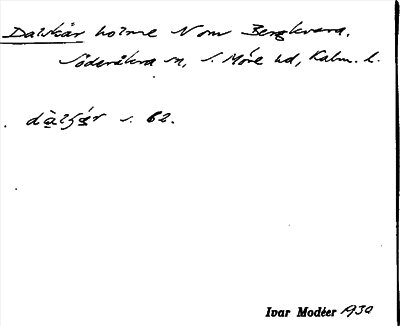 Dalskär holme N om Bergkvara,
Söderåkra sn, S. Möre hd, Kalm. l.
dàlʃä́r s. 62.
Ivar Modéer 1930